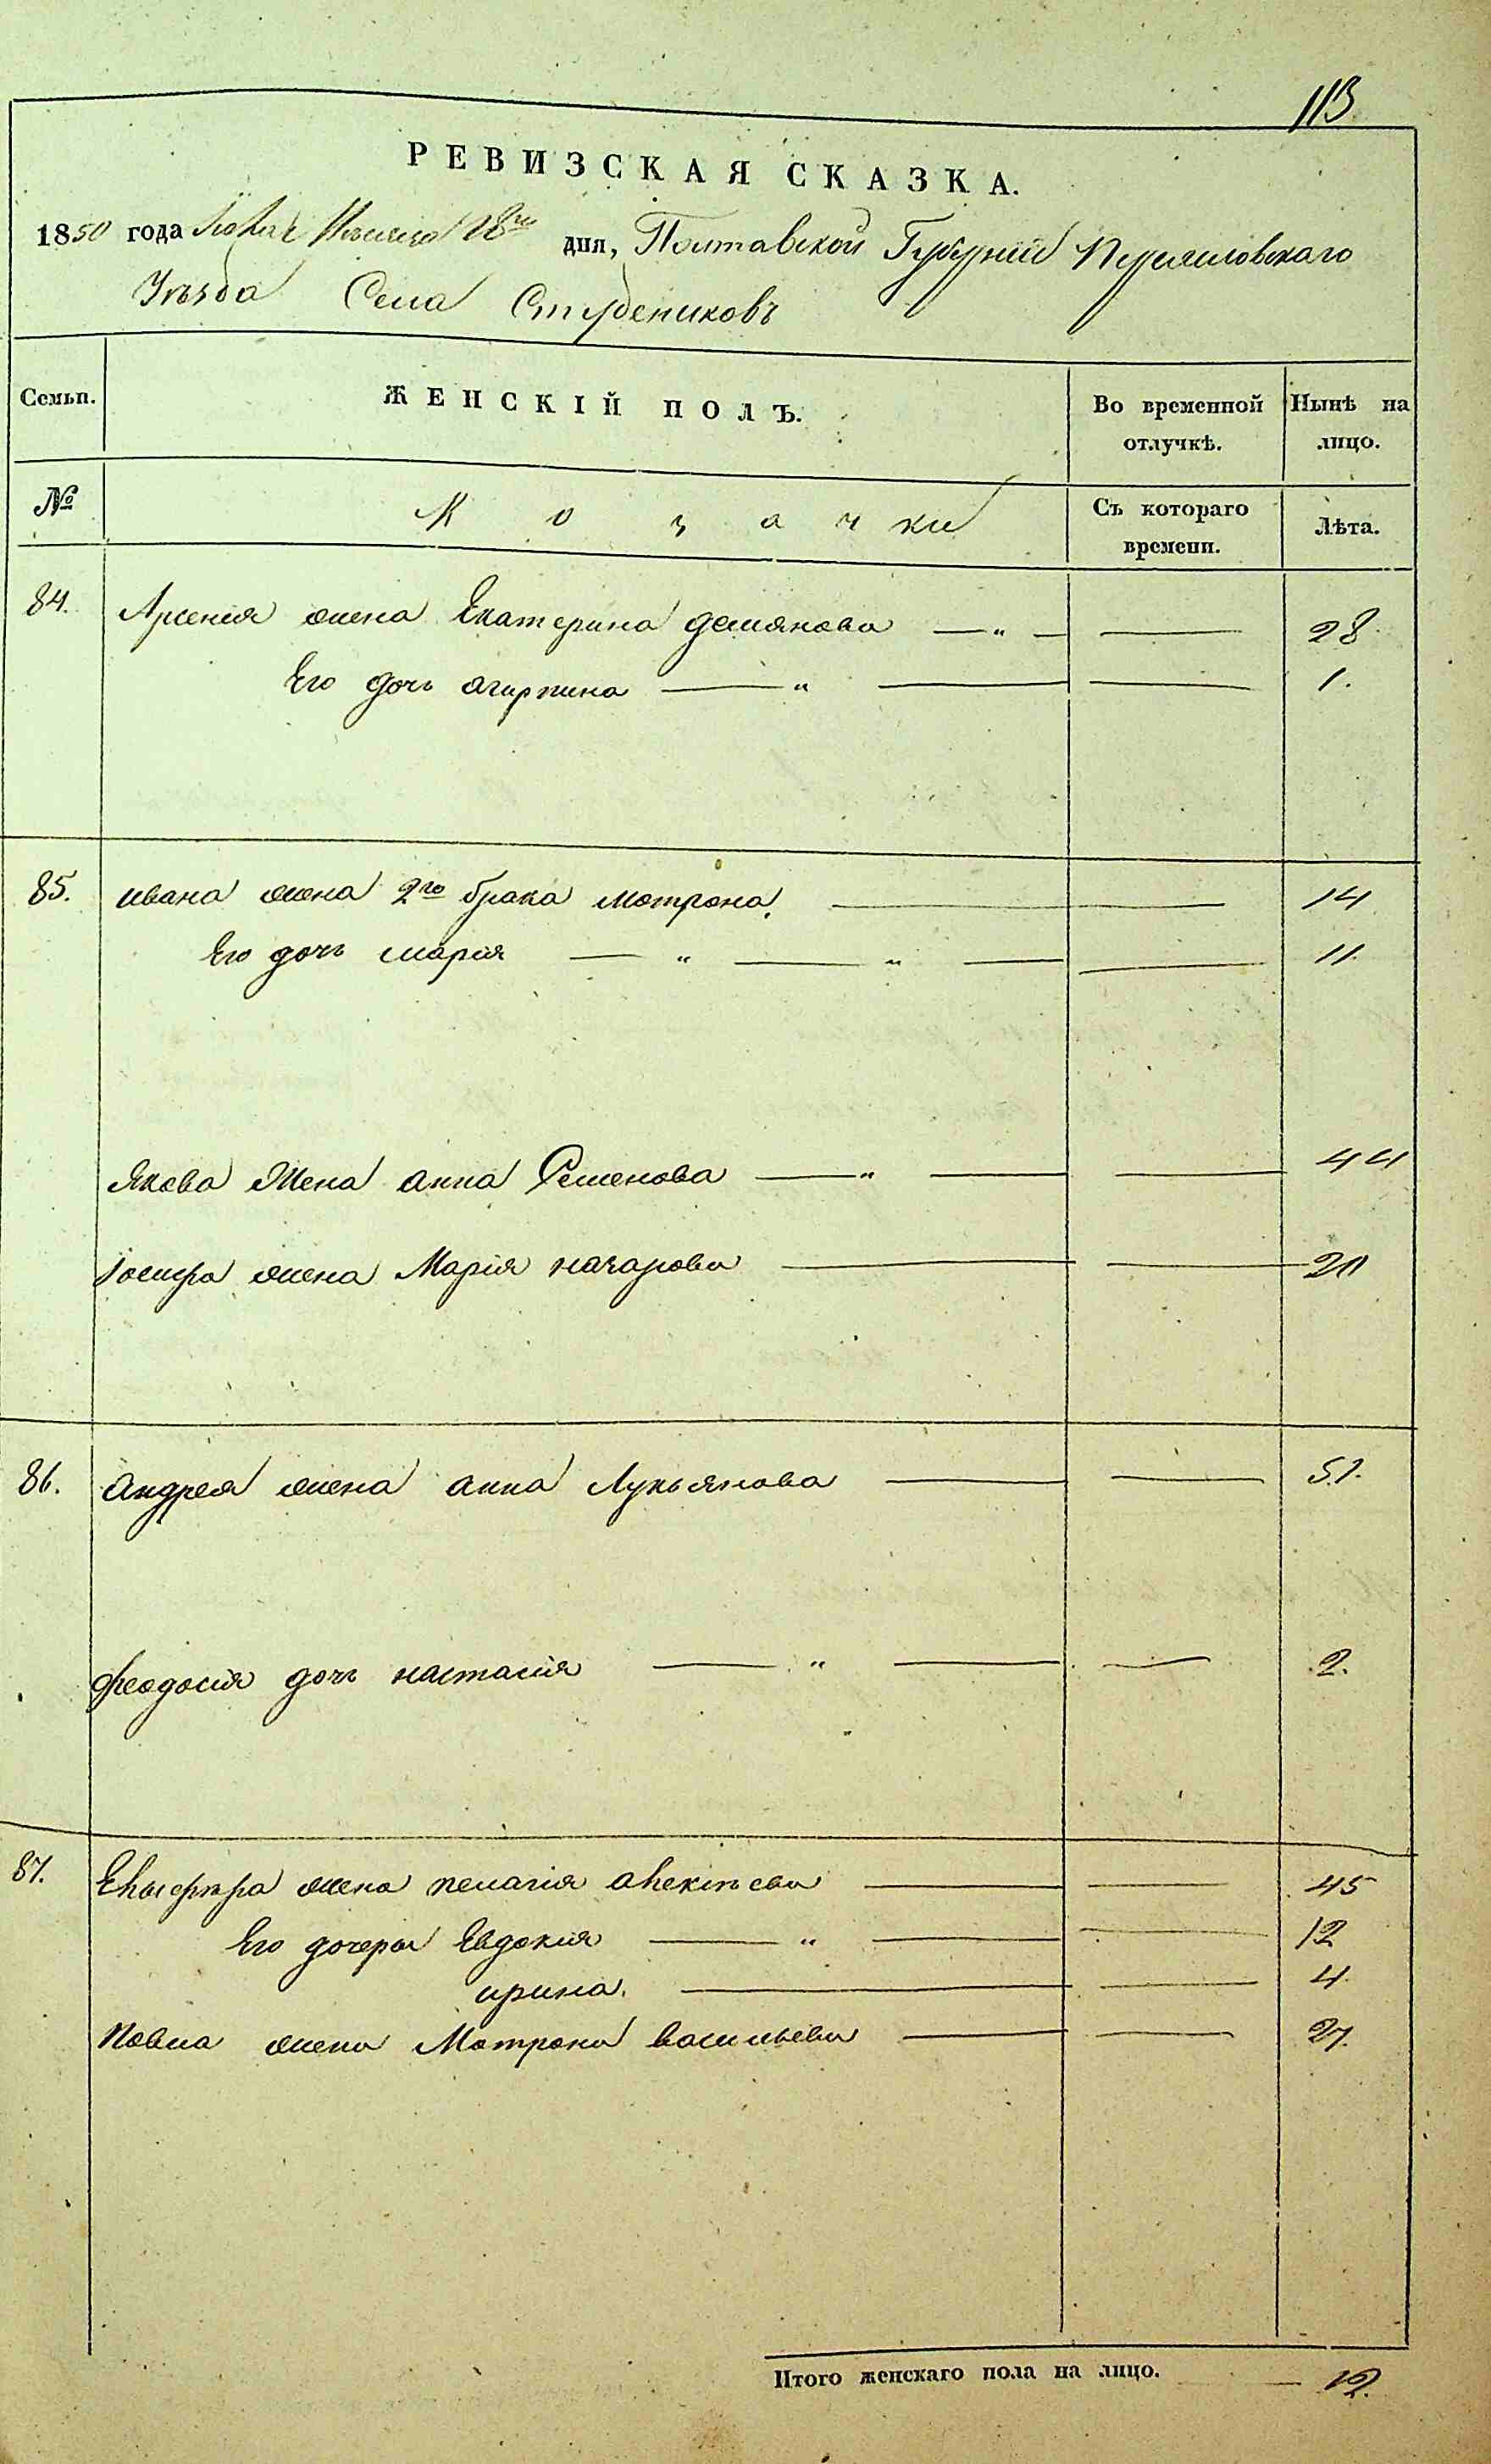 113
РЕВИЗСКАЯ СКАЗКА.
1850 года 18го дня, Полтавской Губерніи Переяславскаго
Уѣзда Села Студениковъ
Семьи. ЖЕНСКІЙ ПОЛЪ. Во временной отлучкѣ. Нынѣ на лицо.
№ Козачки Съ котораго времени. Лѣта.
84. Арсенія жена Екатерина демянова — „ — — 28.
Его дочь агирпина — „ — — 1.
85. ивана жена 2го брака мотрона. — — 14
Его дочь марія — „ — „ — — 11.
Якова Жена анна Семенова — „ — — 44
Іосифа жена Марія — — 20
86. андрея жена анна Лукьянова — — 51.
феодосія дочь настасія — „ — — 2.
87. жена пелагія — — 45
Его дочеры Евдокия — „ — — 12
ирина. — — 4.
Павла жена Мотрона васильева — — 27.
Итого женскаго пола на лицо. — 12.